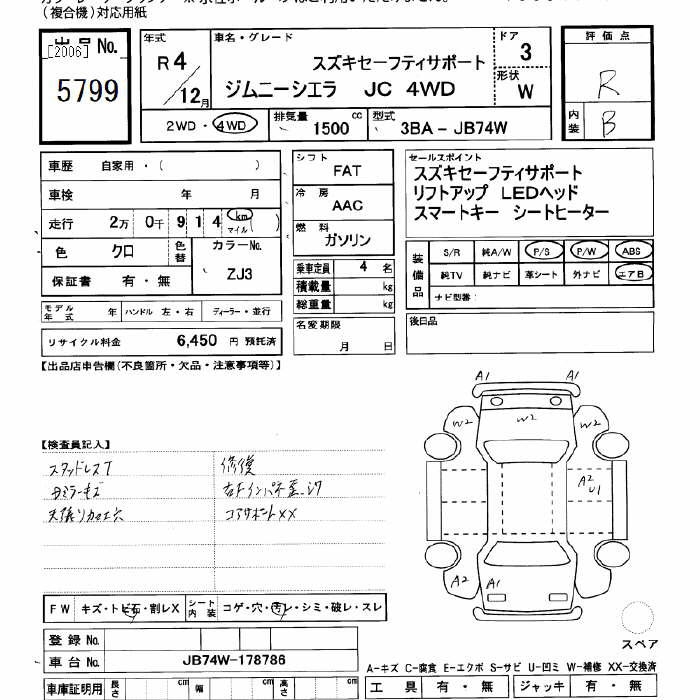 (複合機)対応用紙
出品No. [2006]
5799
年式
R4/12月
車名・グレード
スズキセーフティサポート
ジムニーシエラ JC 4WD
ドア
3
形状
W
評価点
R
内装
B
2WD・4WD
排気量 1500 cc
型式 3BA - JB74W
車歴 自家用・( )
車検 年 月
走行 2万 0千 9 1 4 km マイル ( )
色 クロ
色替
カラーNo.
ZJ3
保証書 有・無
モデル年式 年
ハンドル 左・右
ディーラー・並行
リサイクル料金 6,450 円 預託済
シフト
FAT
冷房
AAC
燃料
ガソリン
乗車定員 4 名
積載量 kg
総重量 kg
名変期限
月 日
セールスポイント
スズキセーフティサポート
リフトアップ LEDヘッド
スマートキー シートヒーター
装備品
S/R 純A/W P/S P/W ABS
純TV 純ナビ 革シート 外ナビ エアB
ナビ型番:
後日品
【出品店申告欄(不良箇所・欠品・注意事項等)】
【検査員記入】
スタッドレスT
修復
コアサポートXX
A1 A1
W2 W2 W2
A2 U1
A2 A1
スペア
FW キズ・トビ石・割レX
シート内装 コゲ・穴・汚レ・シミ・破レ・スレ
登録No.
車台No. JB74W-178786
車庫証明用 長さ cm 幅 cm 高さ cm
A-キズ C-腐食 E-エクボ S-サビ U-凹ミ W-補修 XX-交換済
工具 有・無 ジャッキ 有・無